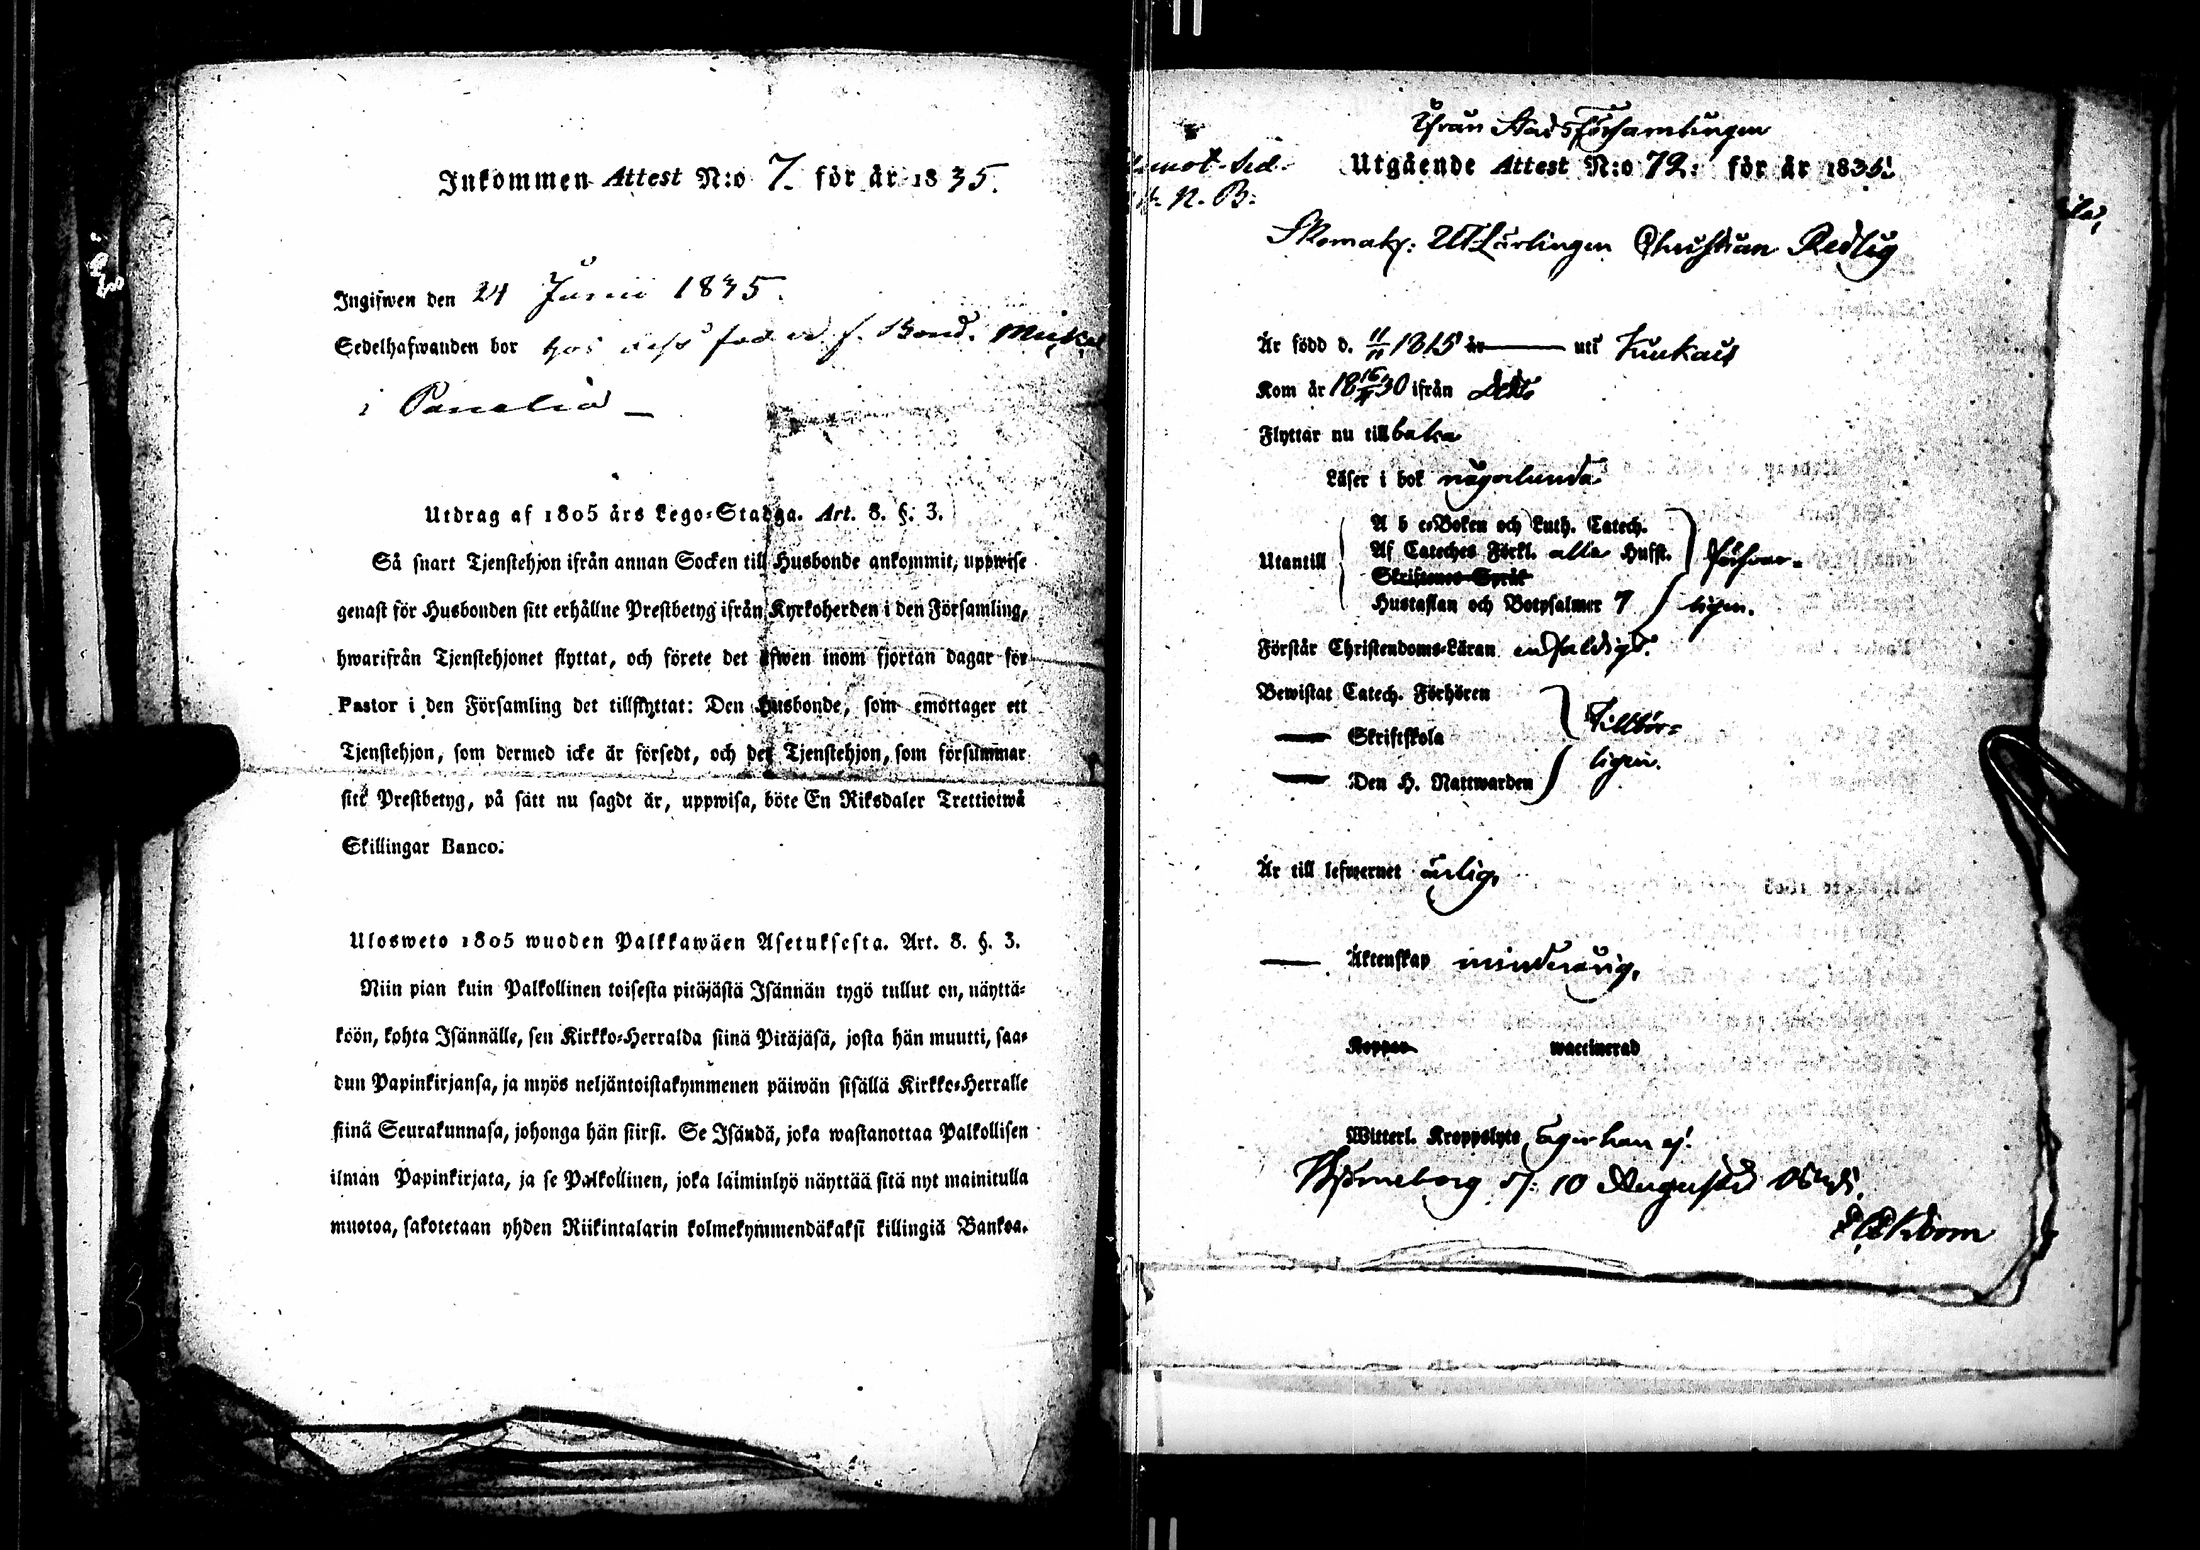 Inkommen Attest N:o 7. för år 1835.
Ingifwen den 24 Junii 1835.
Sedelhafwanden bor hos dess f. Bond. Mickel
i Panelia
Utdrag af 1805 års Lego-Stadga. Art. 8. §. 3.
Så snart Tjenstehjon ifrån annan Socken till Husbonde ankommit, uppwise
genast för Husbonden sitt erhållne Prestbetyg ifrån Kyrkoherden i den Församling,
hwarifrån Tjenstehjonet flyttat, och förete det äfwen inom fjortan dagar för
Pastor i den Församling det tillflyttat: Den Husbonde, som emottager ett
Tjenstehjon, som dermed icke är försedt, och det Tjenstehjon, som försummar
sitt Prestbetyg, på sätt nu sagdt är, uppwisa, böte En Riksdaler Trettiotwå
Skillingar Banco.
Ulosweto 1805 wuoden Palkkawäen Asetuksesta. Art. 8. §. 3.
Niin pian kuin Palkollinen toisesta pitäjästä Isännän tygö tullut on, näyttä-
köön, kohta Isännälle, sen Kirkko-Herralda siinä Pitäjäsä, josta hän muutti, saa-
dun Papinkirjansa, ja myös neljäntoistakymmenen päiwän sisällä Kirkko-Herralle
siinä Seurakunnasa, johonga hän siirsi. Se Isändä, joka wastanottaa Palkollisen
ilman Papinkirjata, ja se Palkollinen, joka laiminlyö näyttää sitä nyt mainitulla
muotoa, sakotetaan yhden Riikintalarin kolmekymmendäkaksi killingiä Bankoa.
Ifrån Stads Församlingen
Utgående Attest N:o 72: för år 1835.
N. B:
Skomak: Lärlingen Christian Redlig
Är född d. 11/11 1815 år uti Kiukais
Kom år 18 30 ifrån
Flyttar nu tillbaka
Läser i bok någorlunda
Utantill
A b c-Boken och Luth. Catech.
Af Cateches Förkl. alla Hufst.
Skriftenes Språk
Hustaflan och Botpsalmer 7
Försvar-
ligen.
Förstår Christendoms-Läran enfaldigt.
Bewistat Catech. Förhören
Skriftskola
Den H. Nattwarden
Tillbör-
ligen.
Är till lefwernet ärlig,
Äktenskap minderårig,
Koppor waccinerad
Witterl. Kroppslyte äger han ej.
Björneborg d: 10 Augusti 1835.